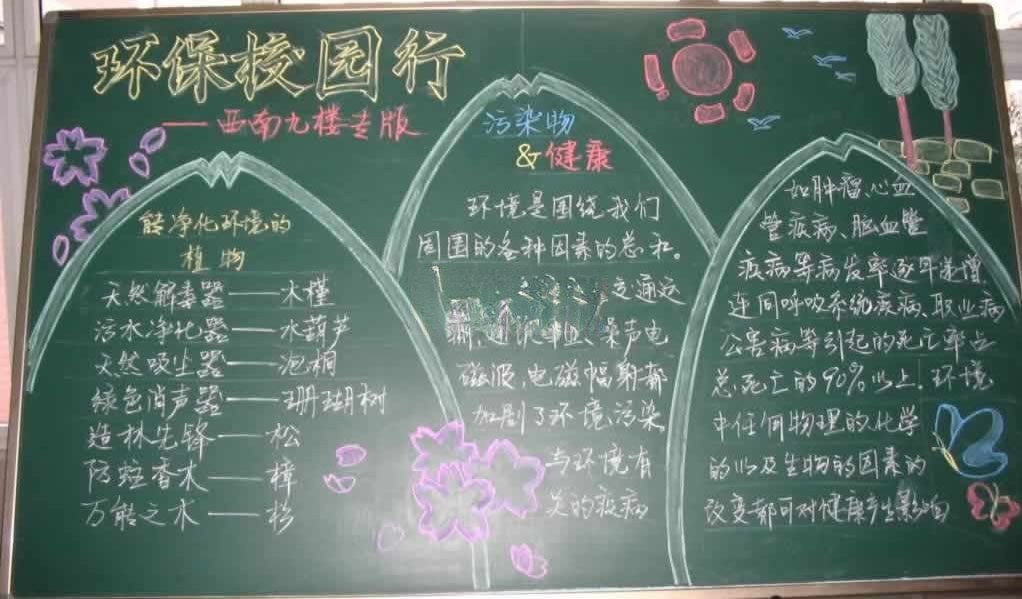 环保校园行
——西南九楼专版
能净化环境的
植物
天然解毒器——木槿
污水净化器——水葫芦
天然吸尘器——泡桐
绿色消声器——珊瑚树
造林先锋——松
防蛀香木——樟
万能之木——杉
污染物
&健康
环境是围绕我们
周围的各种因素的总和。
交通运
输,通讯事业、噪声电
磁波,电磁幅射都
加剧了环境污染
与环境有
关的疾病
如肿瘤、心血
管疾病、脑血管
疾病等病发率逐年递增
连同呼吸系统疾病、职业病
公害病等引起的死亡率占
总死亡的90%以上。环境
中任何物理的化学
的以及生物的因素的
改变都可对健康产生影响